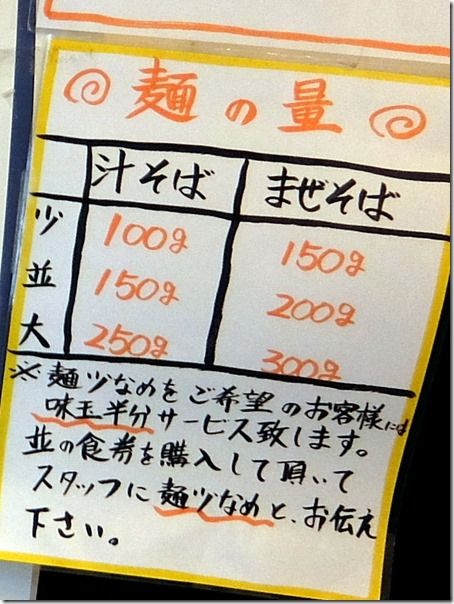 麺の量
汁そば まぜそば
少 100g 150g
並 150g 200g
大 250g 300g
※麺少なめをご希望のお客様には
味玉半分サービス致します。
並の食券を購入して頂いて
スタッフに麺少なめと、お伝え
下さい。